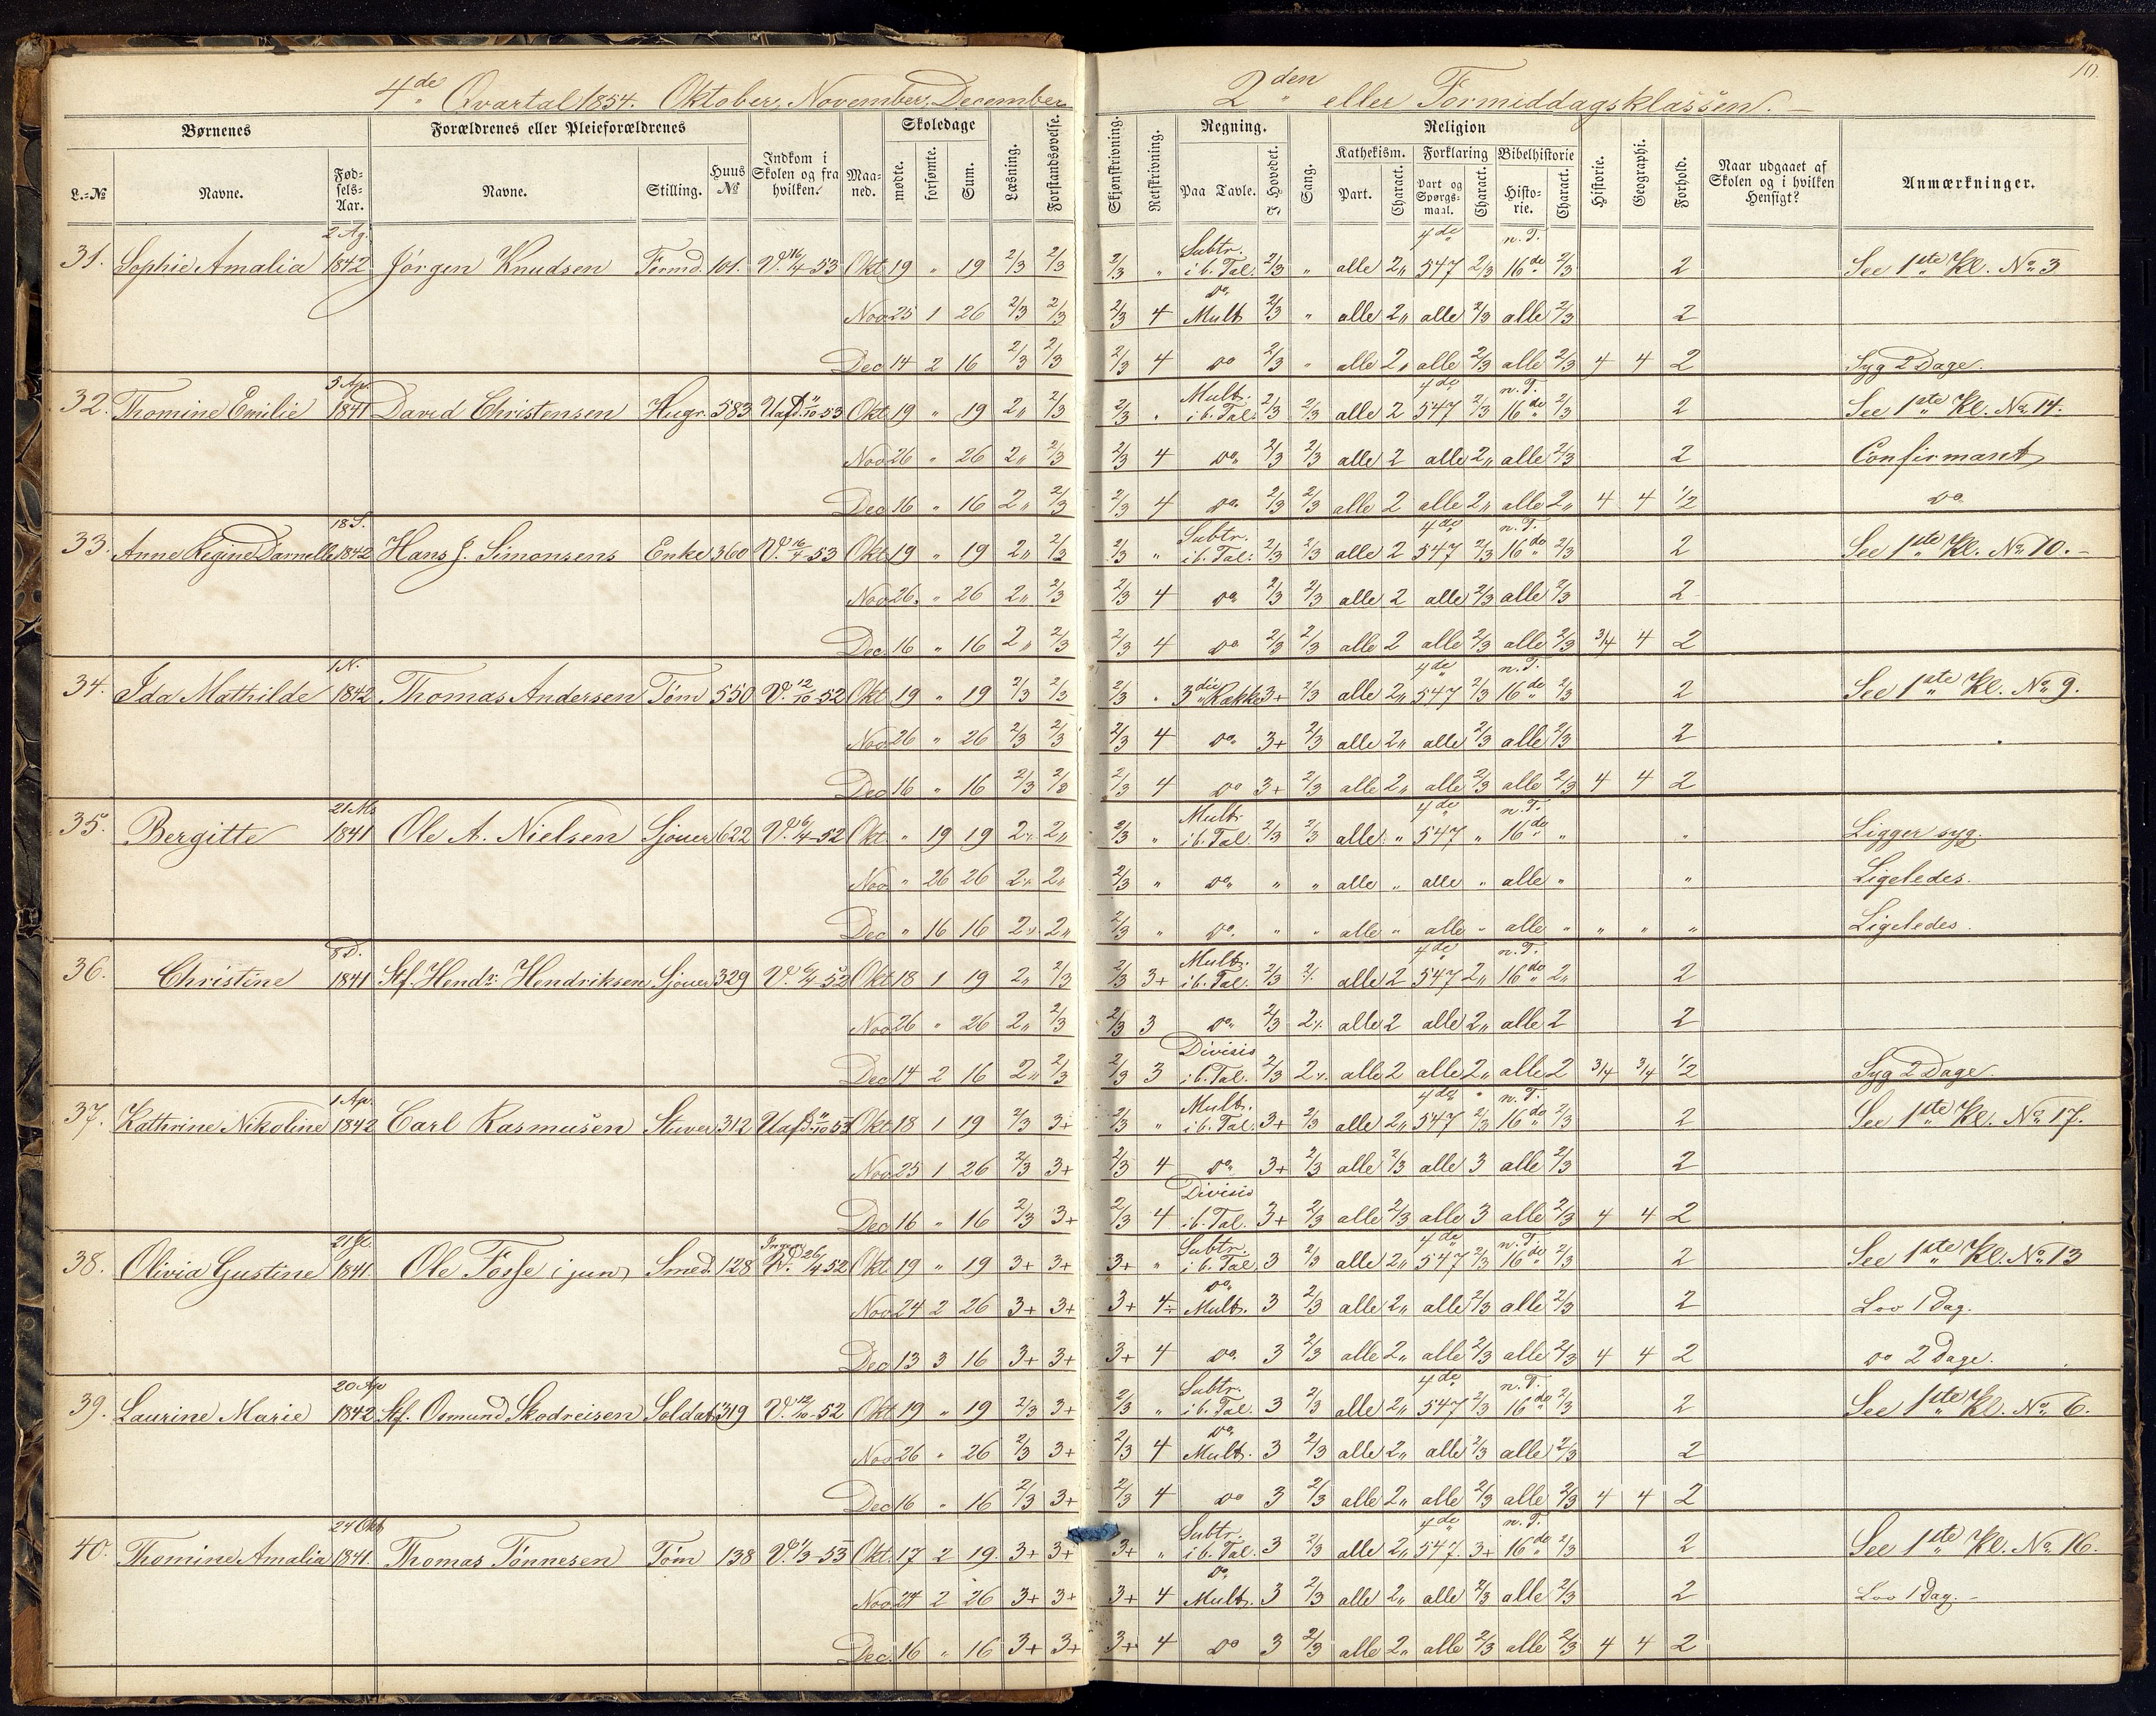 10.
4de Qvartal 1854. Oktober, November, December
2den eller Formiddagsklassen.
Børnenes Forældrenes eller Pleieforældrenes Indkom i Skolen og fra hvilken. Maaned. Skoledage Læsning. Forstandsøvelse.
L.-№ Navne. Fødsels-Aar. Navne. Stilling. Huus № mødte. forsømte. Sum.
Skjønskrivning. Retskrivning. Regning. Sang. Religion Historie. Geographi. Forhold. Naar udgaaet af Skolen og i hvilken Hensigt? Anmærkninger.
Paa Tavle. I Hovedet. Kathekism. Forklaring Bibelhistorie
Part. Charact. Part og Spørgsmaal. Charact. Historie. Charact.
31. Sophie Amalia 2 Ag. 1842 Jørgen Knudsen Tømd. 101. V. 16/4-53 Okt 19 " 19 2/3 2/3 2/3 " Subtr. i b. Tal. 2/3 " alle 2" 4de 547 2/3 n. T. 16de 2/3 2 See 1ste Kl. No 3
Nov 25 1 26 2/3 2/3 2/3 4 do Mult 2/3 " alle 2" alle 2/3 alle 2/3 2
Dec 14 2 16 2/3 2/3 2/3 4 do 2/3 " alle 2" alle 2/3 alle 2/3 4 4 2 Syg 2 Dage.
32. Thomine Emilie 5 Ap. 1841 David Christensen Hugr. 583 Uafd. 11/10-53 Okt 19 " 19 2" 2/3 2/3 " Mult. i b. Tal. 2/3 2/3 alle 2 4de 547 2/3 n. T. 16de 2/3 2 See 1ste Kl. No 14.
Nov 26 " 26 2" 2/3 2/3 4 do 2/3 2/3 alle 2 alle 2" alle 2/3 2 Confirmant
Dec 16 " 16 2" 2/3 2/3 4 do 2/3 2/3 alle 2 alle 2" alle 2" 4 4 1/2 do
33. Anne Regine Darnelle 18 S. 1842 Hans J. Simonsens Enke 360 V. 16/4-53 Okt 19 " 19 2" 2/3 2/3 " Subtr. i b. Tal. 2/3 2/3 alle 2 4de 547 2/3 n. T. 16de 2/3 2 See 1ste Kl. No 10.
Nov 26. " 26 2" 2/3 2/3 4 do 2/3 2/3 alle 2 alle 2/3 alle 2/3 2
Dec. 16 " 16 2" 2/3 2/3 4 do 2/3 2/3 alle 2 alle 2/3 alle 2/3 3/4 4 2
34. Ida Mathilde 1 N. 1842 Thomas Andersen Tøm 550 V. 12/10-52 Okt 19 " 19 2/3 2/3 2/3 " 3die Række 3+ 2/3 alle 2" 4de 547 2/3 n. T. 16de 2/3 2 See 1ste Kl. No 9.
Nov 26 " 26 2/3 2/3 2/3 4 do 3+ 2/3 alle 2" alle 2/3 alle 2/3 2
Dec 16 " 16 2/3 2/3 2/3 4 do 3+ 2/3 alle 2" alle 2/3 alle 2/3 4 4 2
35. Bergitte 21 Ms 1841 Ole A. Nielsen Sjouer 622 V. 6/4-52 Okt. " 19 19 2÷ 2" 2/3 " Mult. i b. Tal. 2/3 2/3 alle " 4de 547 " n. T. 16de " " Ligger syg.
Nov " 26 26 2÷ 2" 2/3 " do " " alle " alle " alle " " Ligeledes.
Dec " 16 16 2÷ 2" 2/3 " do " " alle " alle " alle " " " " Ligeledes.
36. Christine 8 D. 1841 Stf. Hendr: Hendriksen Sjouer 329 V. 6/4-52 Okt 18 1 19 2" 2/3 2/3 3+ Mult. i b. Tal. 2/3 2÷ alle 2 4de 547 2" n. T. 16de 2" 2
Nov 26 " 26 2" 2/3 2/3 3 do 2/3 2÷ alle 2 alle 2" alle 2 2
Dec 14 2 16 2" 2/3 2/3 3 Divisio i b. Tal. 2/3 2÷ alle 2 alle 2" alle 2 3/4 3/4 1/2 Syg 2 Dage.
37. Kathrine Nikoline 1 Ap. 1842 Carl Rasmusen Stuver 312 Uafd. 11/10 53 Okt 18 1 19 2/3 3+ 2/3 " Mult. i b. Tal. 3+ 2/3 alle 2" 4de 547 2/3 n. T. 16de 2/3 2 See 1ste Kl. No 17.
Nov 25 1 26 2/3 3+ 2/3 4 do 3+ 2/3 alle 2/3 alle 3 alle 2/3 2
Dec 16 " 16 2/3 3+ 2/3 4 Divisio i b. Tal. 3+ 2/3 alle 2/3 alle 3 alle 2/3 4 4 2
38. Olivia Gustine 21 Jl. 1841. Ole Fosse i jun Smed. 128 26/4 52 Okt 19 " 19 3+ 3+ 3+ " Subtr. i b. Tal. 3 2/3 alle 2" 4de 547 2/3 n. T. 16de 2/3 2 See 1ste Kl. No 13
Nov 24 2 26 3+ 3+ 3+ 4÷ do Mult. 3 2/3 alle 2" alle 2/3 alle 2/3 2 Lov 1 Dag.
Dec 13 3 16 3+ 3+ 3+ 4 do 3 2/3 alle 2" alle 2/3 alle 2/3 4 4 2 do 2 Dage.
39. Laurine Marie 20 Ap 1842 Stf. Osmund Skodreisen Soldat 319 V. 12/10-52 Okt 19 " 19 2/3 3+ 2/3 " Subtr. i b. Tal. 3 2/3 alle 2" 4de 547 2/3 n. T. 16de 2/3 2 See 1ste Kl. No 6.
Nov 26 " 26 2/3 3+ 2/3 4 do Mult. 3 2/3 alle 2" alle 2/3 alle 2/3 2
Dec 16 " 16 2/3 3+ 2/3 4 do 3 2/3 alle 2" alle 2/3 alle 2/3 4 4 2
40. Thomine Amalia 24 Okt 1841. Thomas Tønnesen Tøm 138 V. 1/3-53 Okt. 17 2 19. 3+ 3+ 3+ " Subtr. i b. Tal. 3 2/3 alle 2" 4de 547. 3+ n. T. 16de 2/3 2 See 1ste Kl. No 16.
Nov 24 2 26 3+ 3+ 3+ 4 do Mult. 3 2/3 alle 2" alle 2/3 alle 2/3 2 Lov 1 Dag.
Dec. 16 " 16 3+ 3+ 3+ 4 do 3 2/3 alle 2" alle 2/3 alle 2/3 4 4 2